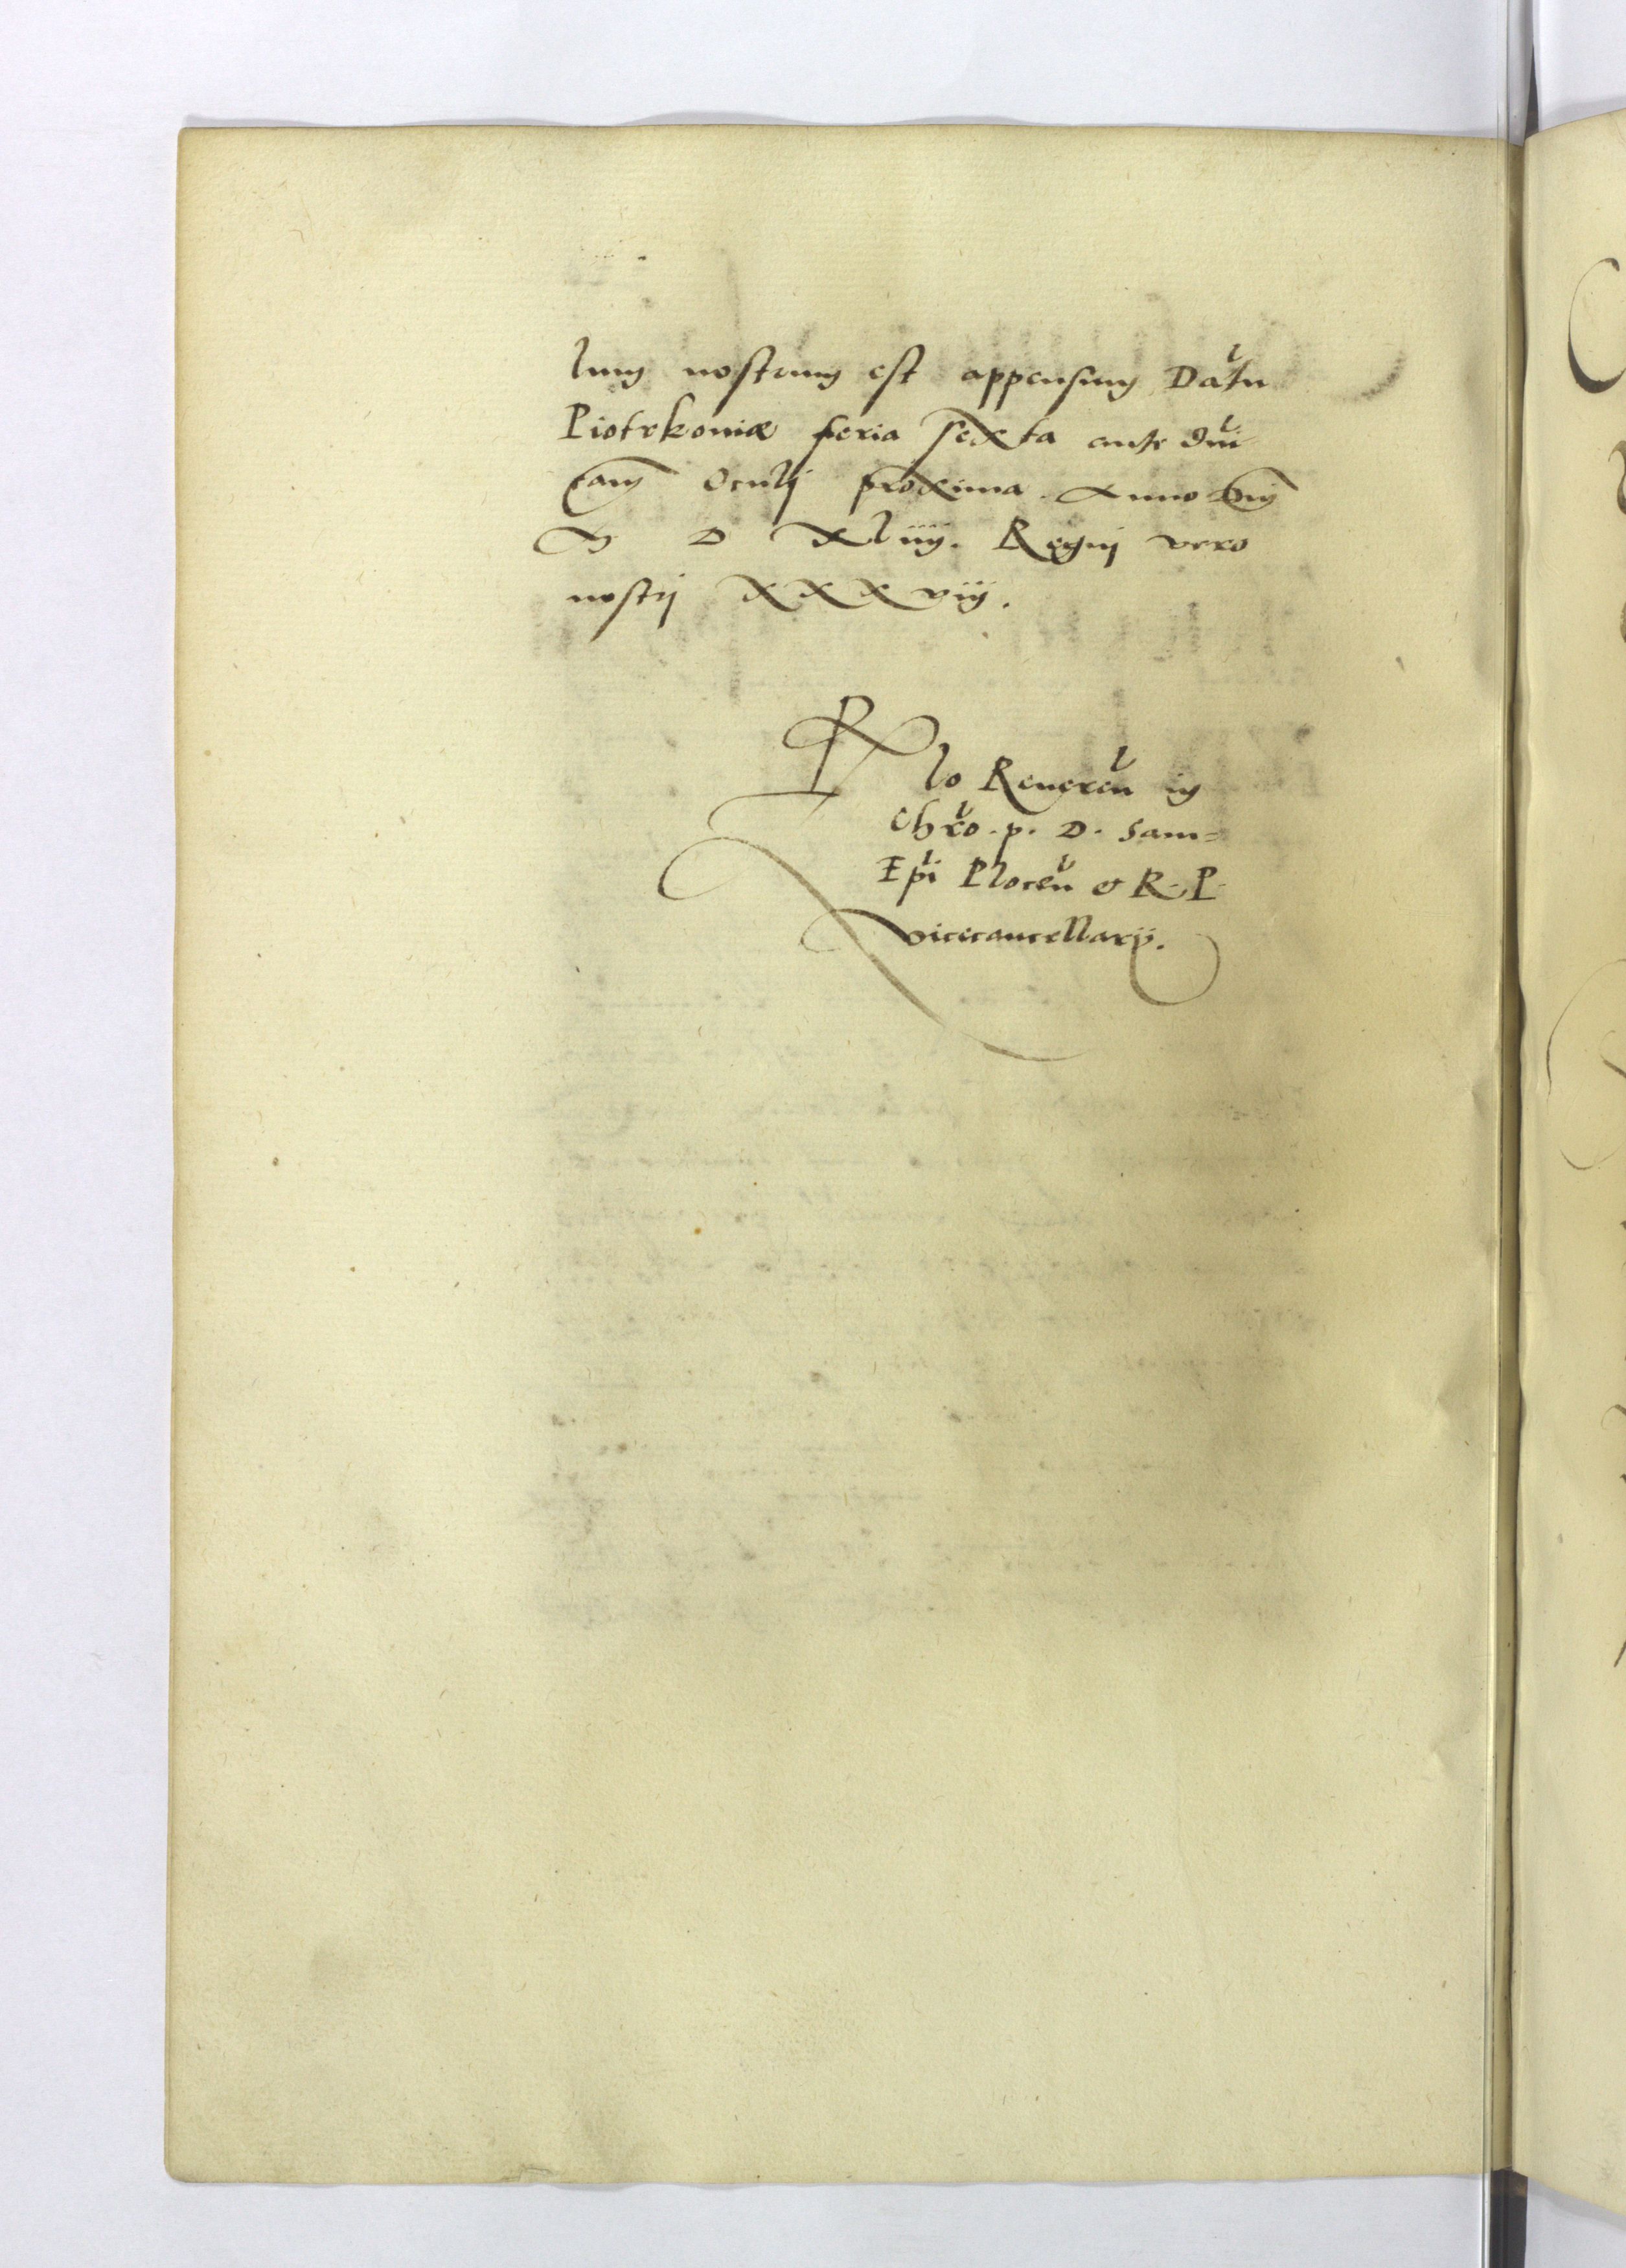 lum nostrum est appensum Datu
Piotrkoniæ feria sexta ante dni
cam Oculi proxima. Anno dnj
M D Xliiij. Regnj vero
nostrj XXXviij.
Rlo Reueren in
Chro. p. D. Sam=
Epi Plocen et R. P.
vicecancellarij.